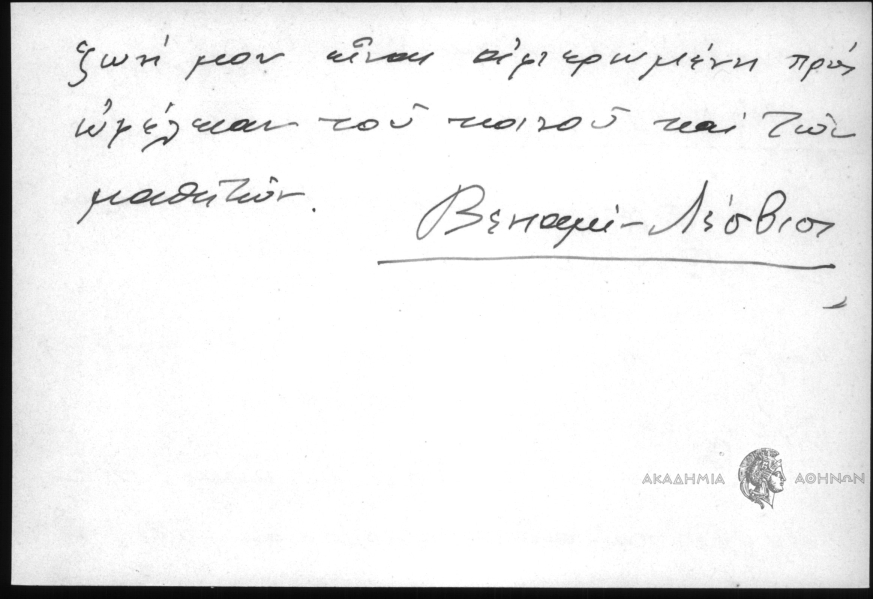 ζωή μου εἶναι ἀφιερωμένη πρός
ὠφέλειαν τοῦ κοινοῦ καί τῶν
μαθητῶν.
Βενιαμίν Λέσβιος
ΑΚΑΔΗΜΙΑ ΑΘΗΝΩΝ